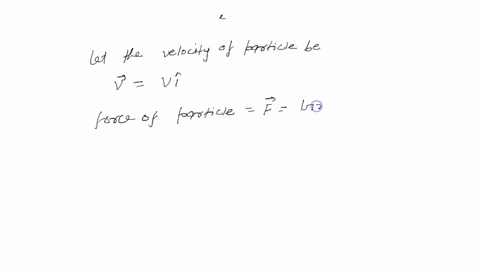 Let the velocity of particle be
v⃗ = vî
force of particle = F⃗ =